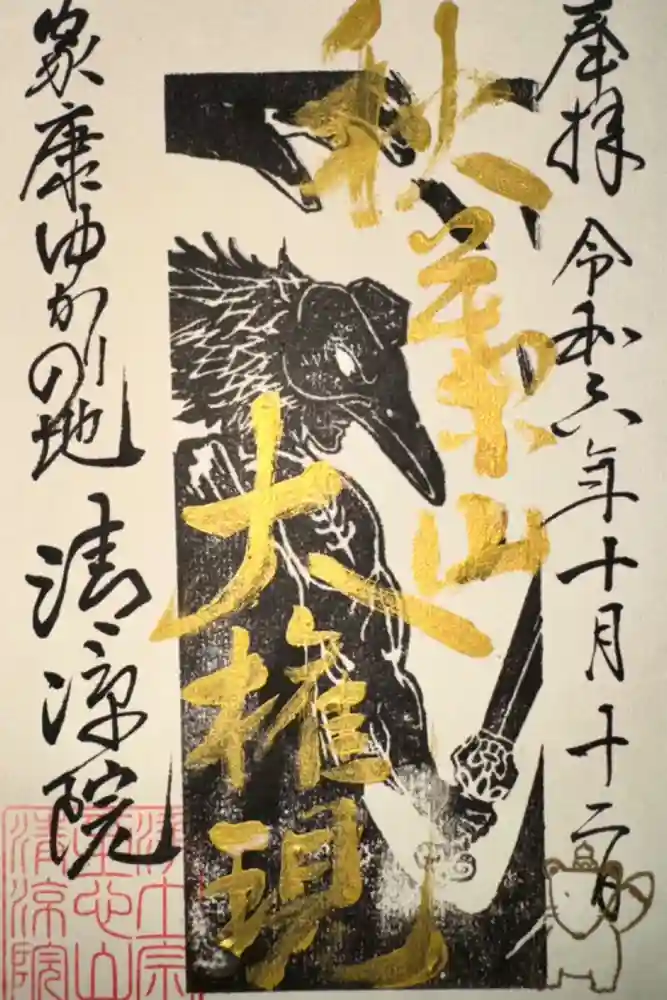 奉拝 令和六年十月十二日
秋葉山
大権現
家康ゆかりの地 清涼院
浄土宗
重心山
清涼院